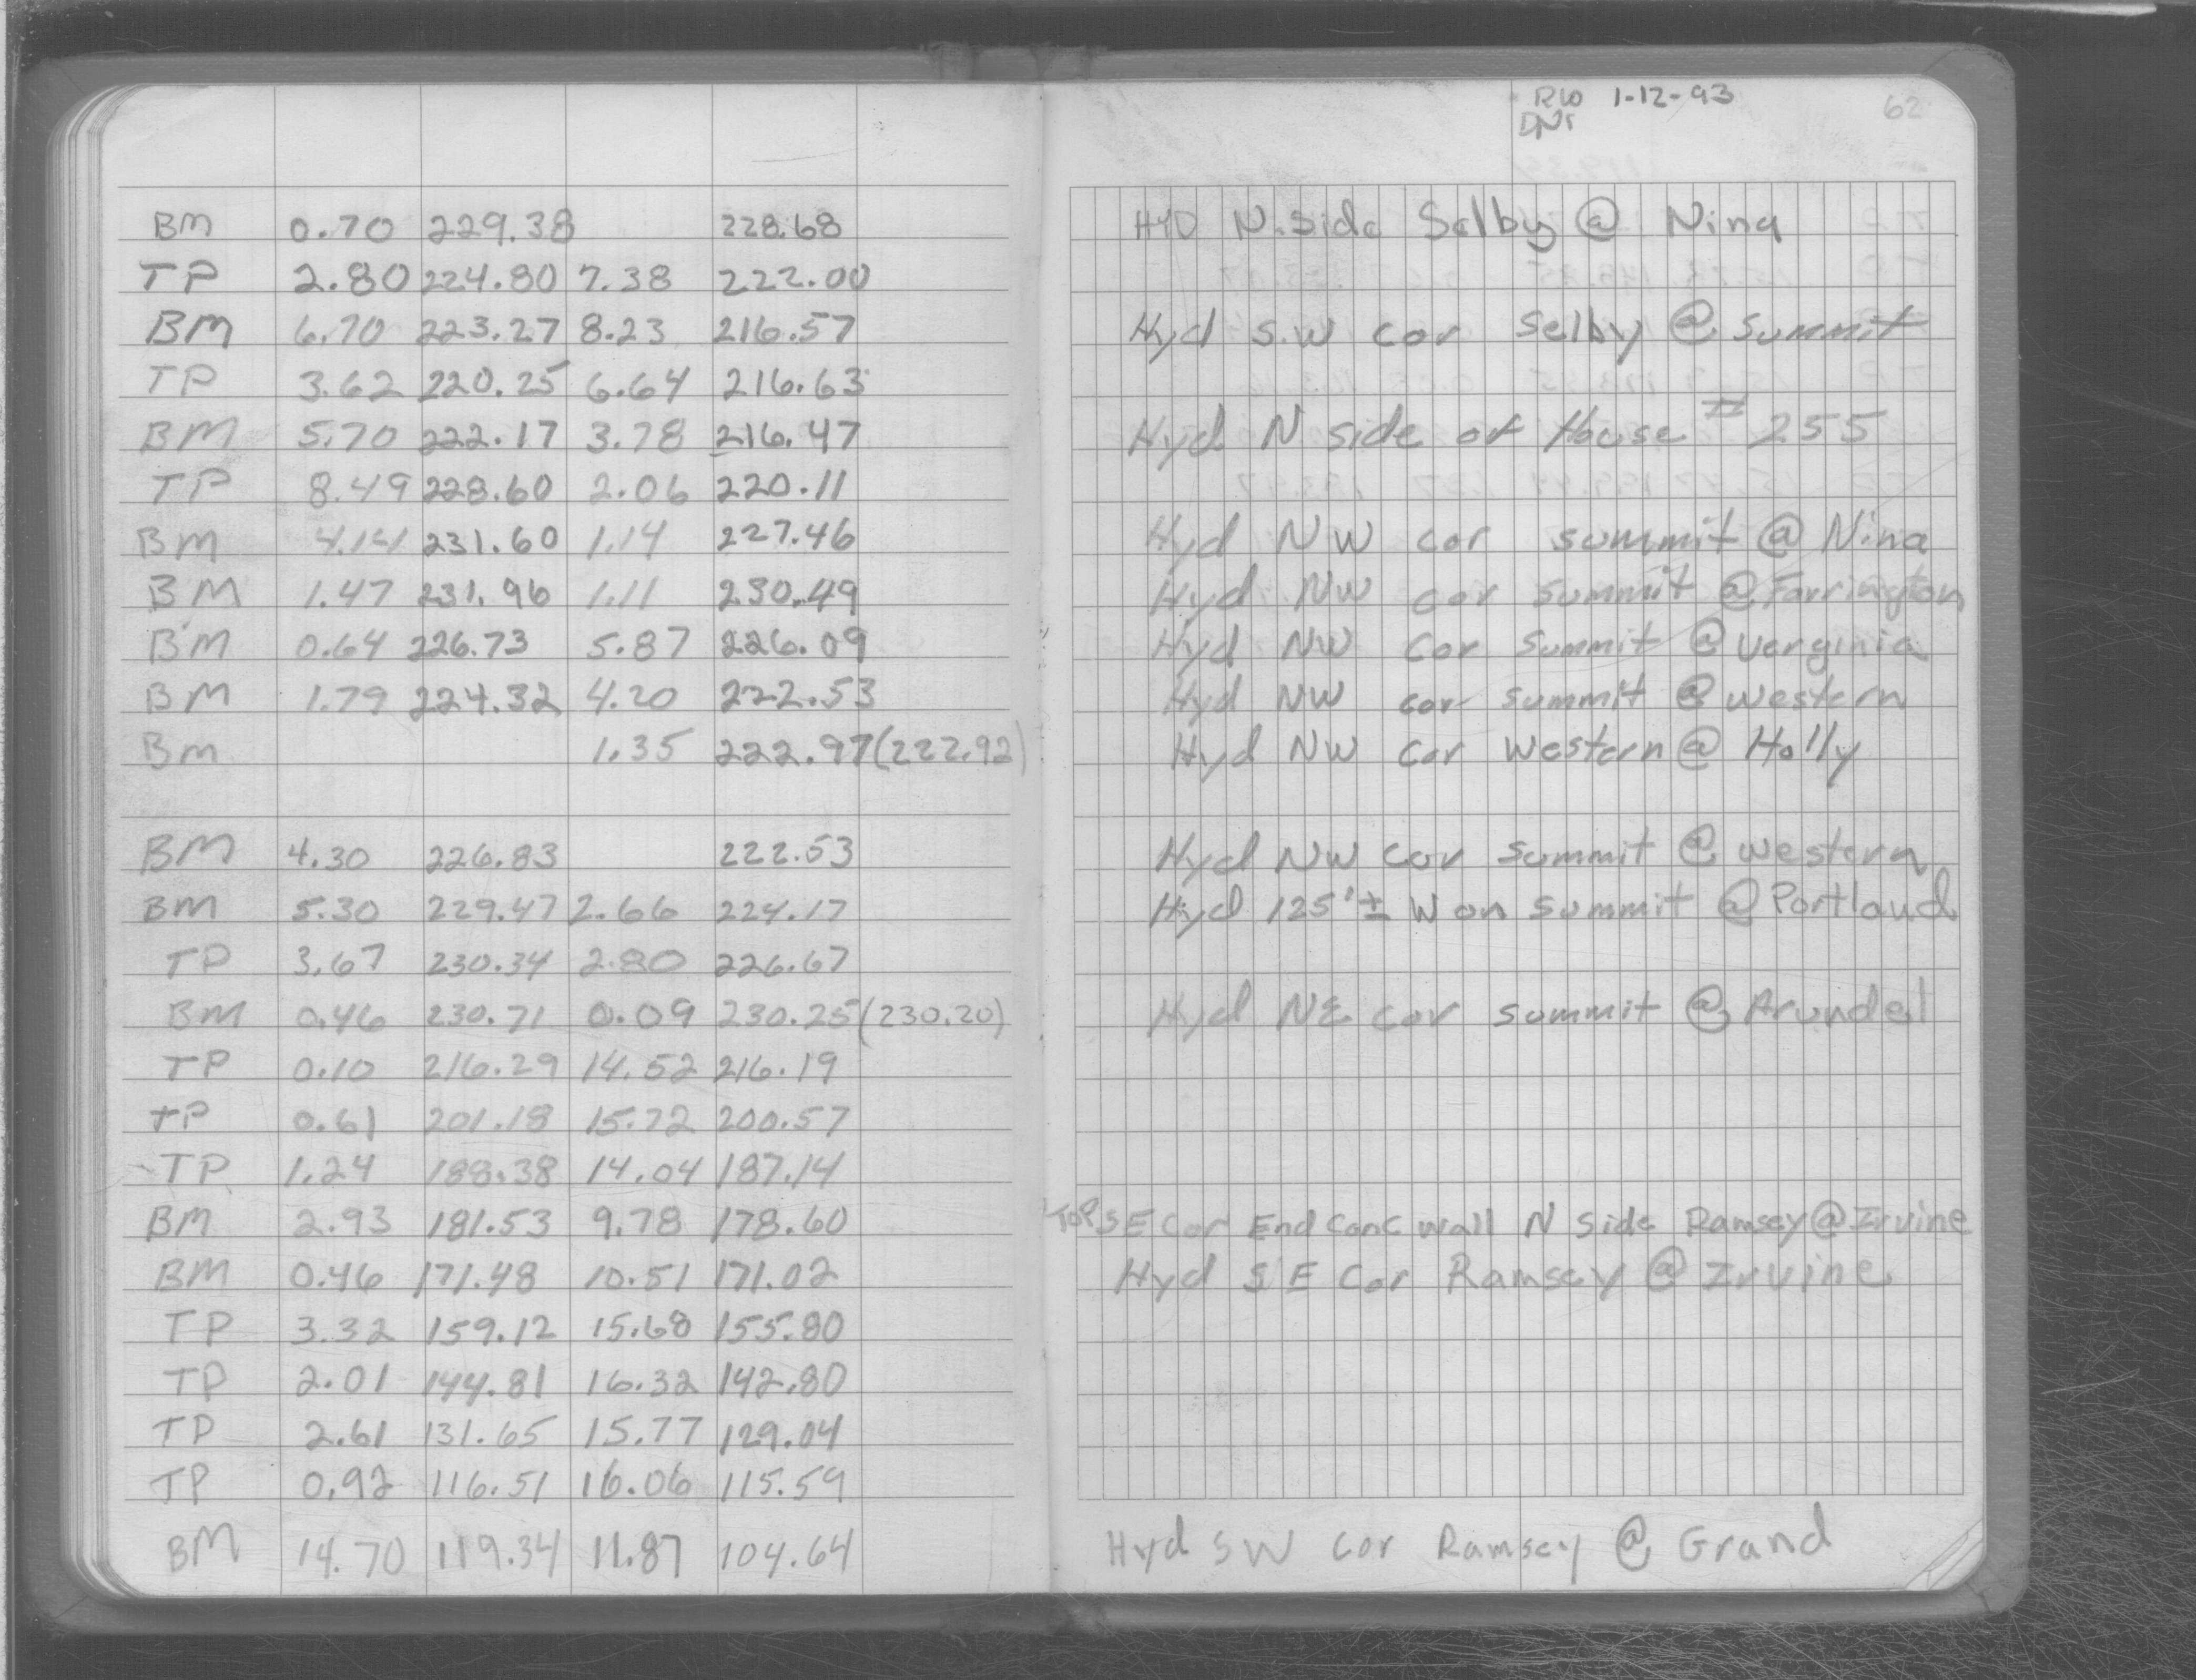 RW 1-12-93 62
DNr
BM 0.70 229.38 228.68 HYD N. Side Selby @ Nina
TP 2.80 224.80 7.38 222.00
BM 6.70 223.27 8.23 216.57 Hyd S.W cor Selby @ Summit
TP 3.62 220.25 6.64 216.63
BM 5.70 222.17 3.78 216.47 Hyd N side of House # 255
TP 8.49 228.60 2.06 220.11
BM 4.14 231.60 1.14 227.46 Hyd NW cor summit @ Nina
BM 1.47 231.96 1.11 230.49 Hyd NW cor summit @ Farrington
BM 0.64 226.73 5.87 226.09 Hyd NW Cor Summit @ Verginia
BM 1.79 224.32 4.20 222.53 Hyd NW cor summit @ western
Bm 1.35 222.97 (222.92) Hyd NW Cor Western @ Holly
BM 4.30 226.83 222.53 Hyd NW Cor summit @ western
BM 5.30 229.47 2.66 224.17 Hyd 125'± W on Summit @ Portland
TP 3.67 230.34 2.80 226.67
BM 0.46 230.71 0.09 230.25 (230.20) Hyd NE cor summit @ Arundel
TP 0.10 216.29 14.52 216.19
TP 0.61 201.18 15.72 200.57
TP 1.24 188.38 14.04 187.14
BM 2.93 181.53 9.78 178.60 TOP SE Cor End Conc wall N Side Ramsey @ Irvine
BM 0.46 171.48 10.51 171.02 Hyd SE Cor Ramsey @ Irvine
TP 3.32 159.12 15.68 155.80
TP 2.01 144.81 16.32 142.80
TP 2.61 131.65 15.77 129.04
TP 0.92 116.51 16.06 115.59
BM 14.70 119.34 11.87 104.64 Hyd SW Cor Ramsey @ Grand